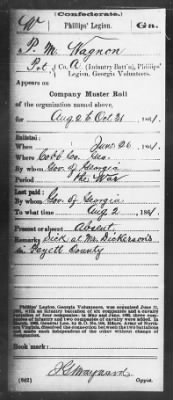 (Confederate.)
W Phillips' Legion. Ga.
P. M. Wagnon
Pvt, Co. A (Infantry Batt'n), Phillips'
Legion, Georgia Volunteers.
Appears on
Company Muster Roll
of the organization named above,
for Aug 2 to Oct 31, 1861.
Enlisted:
When June 26, 1861.
Where Cobb Co. Ga.
By whom Gov. of Georgia
Period the War
Last paid:
By whom Gov. of Georgia
To what time Aug 2, 1861.
Present or absent Absent
Remarks Sick at Mr. Dickersons
in Fayett County
Phillips' Legion, Georgia Volunteers, was organized June 11,
1861, with an infantry battalion of six companies and a cavalry
Book mark:
(642) Copyist.